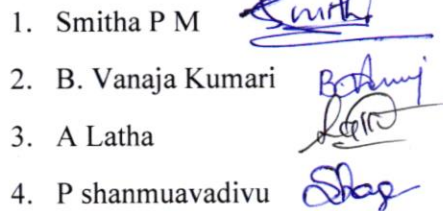 1. Smitha P M Smitha
2. B. Vanaja Kumari
3. A Latha
4. P shanmuavadivu